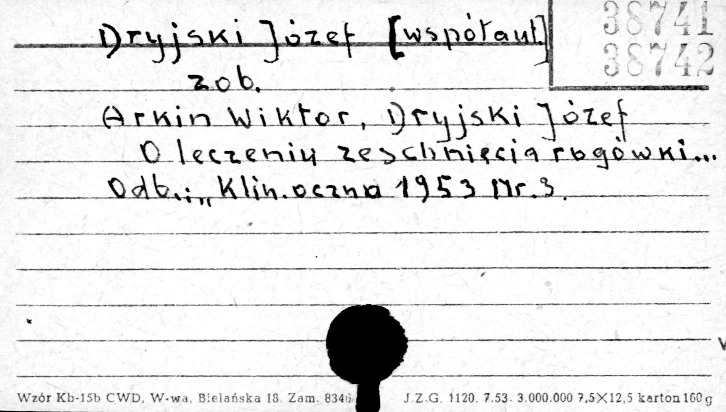 Dryjski Józef [współaut.]
38741
38742
zob.
Arkin Wiktor, Dryjski Józef
O leczeniu zeschnięcia rogówki...
Odb.: „Klin. oczna 1953 Nr. 3.
Wzór Kb-15b CWD, W-wa, Bielańska 18. Zam. 8346 J.Z.G. 1120. 7.53. 3.000.000 7,5×12,5 karton 160 g